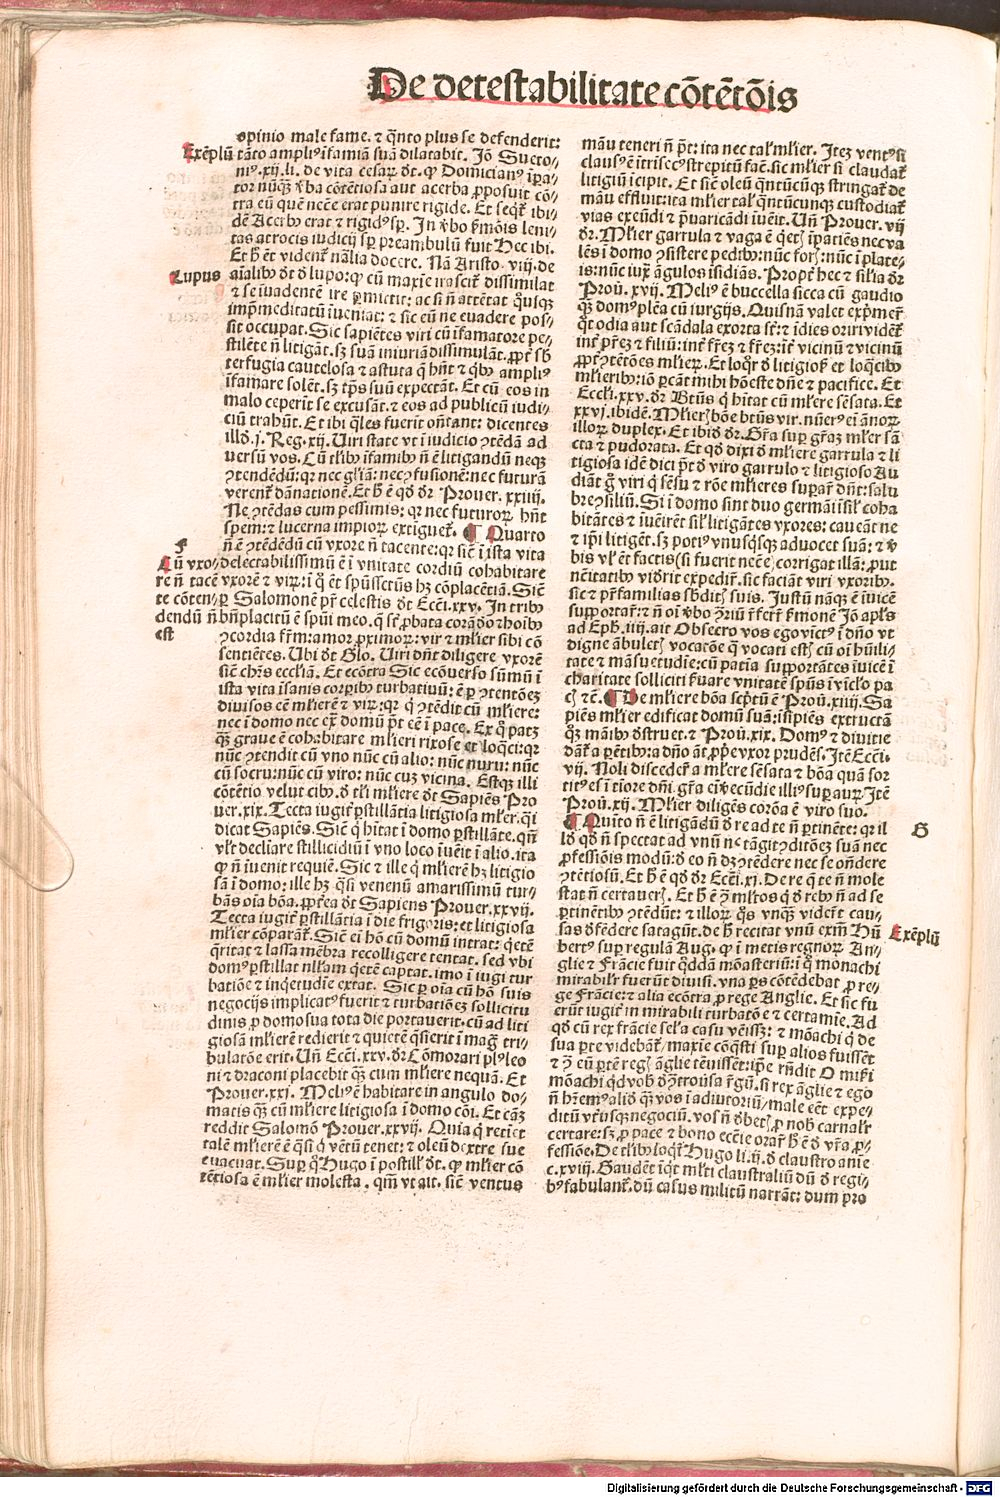 De detestabilitate cōtētōis
opinio male fame. ⁊ q̄nto plus se defenderit:
Exēplū
tāto ampliꝰ īfamiā suā dilatabit. Jō Sueto-
niꝰ.xij.li. de vita cesaꝝ dt. ꝙ Domicianꝰ īꝑa-
tor nūqꝫ ꝟba cōtētiosa aut acerba ꝓposuit cō-
tra eū quē nccē erat punire rigide. Et seqt̄ ibi-
dē Acerbꝰ erat ⁊ rigidꝰ sꝑ. Jn ꝟbo ẜmōis leni-
tas atrocis iudicij sꝑ preambulū fuit Hec ibi.
Et h̄ ēt videnť nālia docere. Nā Aristo. viij. de
Lupus
aīalibꝰ dt ꝺ lupo: ꝙ cū maxīe irascit̄ dissimilat
⁊ se īuadentē ire ꝑmittit: ac si n̄ attētat q̄usqꝫ
imp̄meditatū īueniat: ⁊ sic cū ne euadere pos-
sit occupat. Sic sapiētes viri cū īfamatore pe-
stilēte n̄ litigāt. sꝫ suā iniuriā dissimulāt. ꝓpt̄ sb̄
terfugia cautelosa ⁊ astuta q̄ hn̄t ⁊ qͥbꝰ ampliꝰ
īfamare solēt. sꝫ tp̄s suū expectāt. Et cū eos in
malo ceperīt se excusāt. ⁊ eos ad publicū iudi-
ciū trahūt. Et ibi q̄les fuerīt oñtant: dicentes
illd̄ .j. Reg. xij. Viri state vt ī iudicio ꝯtēdā ad
uersū vos. Cū tl̄ibꝰ īfamibꝰ n̄ ē litigandū neqꝫ
ꝯtendēdū: qꝛ nec gl̄iā: necꝫ fusionē: nec futurā
verenť dānationē. Et h̄ ē qd̄ dꝛ Prouer. xxiiij.
Ne ꝯtēdas cum pessimis: qꝛ nec futuroꝝ hn̄t
spem: ⁊ lucerna impioꝝ extinguet̄. ¶ Quarto
F
n̄ ē ꝯtēdēdū cū vxore n̄ tacente: qꝛ sicͥ ī ista vita
Cū vxo-
re n̄ tacē
te cōten-
dendū n̄
est
delectabilissimū ē ī vnitate cordiū cohabitare
vxorē ⁊ viꝝ: ī q̄ ēt spūssctūs hꝫ cōplacētiā. Sic̄
ꝑ Salomonē pr̄ celestis dt Eccī. xxv. Jn tribꝰ
bn̄placitū ē spūi meo. q̄ st̄ ꝓbata corā do ⁊ hoībꝰ
ꝯcordia fr̄m: amor ꝓximoꝝ: vir ⁊ ml̄ier sibi cō
sentiētes. Ubi dt Glo. Viri dn̄t diligere vxorē
sic̄ chr̄s ecclīā. Et ecōtra Sic ecōuerso sūmū ī
ista vita īsanis corꝑibꝰ turbatiuū: ē ꝑ ꝯtentōeꝫ
diuisos eē ml̄ierē ⁊ viꝝ: qꝛ q̄ ꝯtēdit cū ml̄iere:
nec ī domo nec ex̄ domū pt̄ eē ī pace. Ex q̄ patꝫ
qꝫ graue ē cohabitare ml̄ieri rixose et loq̄ci: qꝛ
nūc ꝯtendit cū vno nūc cū alio: nūc nuru: nūc
cū socru: nūc cū viro: nūc cuꝫ vicīna. Estqꝫ illi
cōtētio velut cibꝰ. ꝺ tl̄i ml̄iere dt Sapiēs Pro
uer. xix. Tecta iugiť ꝑstillātia litigiosa ml̄er. qͥ
dicat Sapiēs. Sic̄ q̄ hītat ī domo ꝑstillāte. qn̄
vl̄t decliare stillicidiū ī vno loco īuēit ī alio. ita
ꝙ n̄ iuenit requiē. Sic ⁊ ille q̄ ml̄ierē hꝫ litigio
sā ī domo: ille hꝫ q̄si venenū amarissimū tur-
bās oīa bōa. ꝓpt̄ea dt Sapiens Prouer. xxvij.
Tecta iugiť ꝑstillātia ī die frigoris: et litigiosa
ml̄ier cōparat̄. Sic̄ ei hō cū domū intrat: q̄etē
q̄ritat ⁊ lassa mēbra recolligere tentat. sed vbi
domꝰ ꝑstillat nl̄lam q̄etē captat. imo ī iugi tur
batiōe ⁊ inq̄etudīe extat. Sic ꝑ oīa cū hō suis
negocijs implicatꝰ fuerit ⁊ turbatiōeꝫ sollicitu
dinis ꝓ domo sua tota die portauerit. cū ad liti
giosā ml̄ierē redierit ⁊ quietē q̄sierit ī mag̃ tri-
bulatōe erit. Un̄ Eccī. xxv. dꝛ Cōmorari plꝰ leo
ni ⁊ draconi placebit qꝫ cum ml̄iere nequā. Et
Prouer. xxj. Meliꝰ ē habitare in angulo do-
matis qꝫ cū ml̄iere litigiosa ī domo cōi. Et cāꝫ
reddit Salomō Prouer. xxvij. Quia q̄ retiet
talē ml̄ierē ē q̄si q̄ vētū tenet: ⁊ oleū dextre sue
euacuat. Suꝑ q̄ Hugo ī postill̄ dt. ꝙ ml̄ier cō
tētiosa ē ml̄ier molesta. qm̄ vt ait. sic̄ ventus
māu teneri n̄ pt̄: ita nec tal̓ ml̄ier. Jteꝫ ventꝰ si
clausꝰ ē ītrisecꝰ strepitū fac̄. sic ml̄ier si claudat̄
litigiū īcipit. Et sic̄ oleū q̄ntūcūqꝫ stringat̄ de
māu effluit: ita ml̄ier tal̓ q̄ntūcunqꝫ custodiat̄
vias excūdi ⁊ p̄uaricādi īuēit. Un̄ Prouer. vij
dꝛ. Ml̄ier garrula ⁊ vaga ē q̄etꝫ īpatiēs nec va
lēs ī domo ꝯsistere pedibꝰ: nūc foꝛꝫ: nūc ī plate-
is: nūc iux̄ āgulos īsidiās. Propt̄ hec ⁊ sil̓ia dꝛ
Proū. xvij. Meliꝰ ē buccella sicca cū gaudio
qꝫ domꝰ plēa cū iurgijs. Quisnā valet exp̄mer̄
q̄t odia aut scādala exorta st̄: ⁊ īdies oriri vidēť
inť pr̄eꝫ ⁊ filiū: inť fr̄eꝫ ⁊ fr̄eꝫ: iť vicinū ⁊ vicinū
ꝓpt̄ ꝯtētōes ml̄ieꝝ. Et loqr̄ ꝺ litigiosꝭ et loq̄cibꝰ
ml̄ieribꝰ: iō ꝑcāt mihi hōeste dn̄e ⁊ pacifice. Et
Eccli. xxv. dꝛ Btūs q̄ hītat cū ml̄iere sēsata. Et
xxvj. ibidē. Ml̄ierꝫ bōe btūs vir. nūerꝰ ei āñoꝝ
illoꝝ duplex. Et ibid̄ dꝛ. Gr̄a suꝑ gr̄aꝫ ml̄er sā
cta ⁊ pudorata. Et qd̄ dixi ꝺ ml̄iere garrula ⁊ li
tigiosa idē dici pt̄ ꝺ viro garrulo ⁊ litigioso Au
diāt g̊ viri q̄ sēsu ⁊ rōe ml̄ieres suꝑar̄ dn̄t: salu
bre ꝯsiliū. Si ī domo sint duo germāi sil̓ coha
bitātes ⁊ īuēirēt sil̓ litigātes vxores: caueāt ne
⁊ ip̄i litigēt. sꝫ potiꝰ vnusqͥsqꝫ aduocet suā: ⁊ ꝟ
bis vl̓ ēt factis (si fuerit nccē) corrigat illā: ꝓut
nēitatibꝰ vid̓rit expediř. sic faciāt viri vxoribꝰ.
sic ⁊ pr̄familias sb̄ditꝭ suis. Justū nāqꝫ ē iuicē
supportař: ⁊ n̄ oī ꝟbo ꝯriū r̄ferř ẜmonē Jō apl̄s
ad Eph. iiij. ait Obsecro vos ego victꝰ ī dn̄o vt
digne ābuletꝭ vocatōe q̄ vocati estꝭ cū oī hūili-
tate ⁊ māsuetudīe: cū patīa supportātes īuicē ī
charitate solliciti ẜuare vnitatē spūs ī vīclo pa
cꝭ ⁊cē. ¶ De ml̄iere bōa scp̄tū ē Proū. xiiij. Sa
piēs ml̄ier edificat domū suā: īsipiēs extructā
qꝫ māibꝰ ꝺstruet. ⁊ Proū. xix. Domꝰ ⁊ diuitie
dāť a pētibꝰ: a dn̄o āt ꝓpe vxor prudēs. Jtē Eccī.
vij. Noli discedeř a ml̄iere sēsata ⁊ bōa quā sor
titꝰ es ī tīore dn̄i. gr̄a eī ꝟecūdie illiꝰ suꝑ auꝝ. Jtē
Proū. xij. Ml̄ier diligēs corōa ē viro suo.
¶ Quīto n̄ ē litigādū ꝺ re ad te n̄ ꝑtinēte: qꝛ il
G
lꝺ qd̄ n̄ spectat ad vnū nc̄ tāgit ꝯditōeꝫ suā nec
ꝓfessiōis modū: ꝺ eo n̄ dꝫ ꝯtēdere nec se oñdere
ꝯtētiosū. Et h̄ ē qd̄ dꝛ Eccī. xj. De re q̄ te n̄ mole
stat n̄ certauerꝭ. Et h̄ ē ꝯ ml̄tos q̄ ꝺ rebꝰ n̄ ad se
ꝑtinētibꝰ ꝯtēdūt: ⁊ illoꝝ q̄s vnqꝫ viderūt cau-
sas ꝺfēdere satagūt. de h̄ recitat vnū exm̄ Hū
Exēplū
bertꝰ suꝑ regulā Aug. ꝙ ī metis regnoꝝ An-
glie ⁊ Frācie fuit q̄ddā mōasteriū: ī q̄ monachi
mirabilr̄ fuerūt diuisi. vna ꝑs cōtēdebat ꝓ re-
ge Frācie: ⁊ alia ecōtra ꝓ rege Anglie. Et sic fu
erūt iugiť in mirabili turbatōe ⁊ certamīe. Ad
qd̄ cū rex frācie sel̓a casu vēissꝫ: ⁊ mōachi q̄ de
sua ꝑte videbāť. maxīe cōq̄sti suꝑ alios fuissēt
⁊ ꝙ cū ꝑtē regꝭ āglie tēuissēt: ip̄e rn̄dit O miẜi
mōachi qͥd vob̄ ꝺ ꝯtrouẜa r̄gū. si rex āglie ⁊ ego
n̄ hēmꝰ aliōs qꝫ vos ī adiutoriū. male eēt expe-
ditū vtriusqꝫ negociū. vos n̄ ꝺbetꝭ ꝓ nob̄ carnalr̄
certare: sꝫ ꝓ pace ⁊ bono eccīe orař h̄ ē ꝺ vr̄a ꝓ-
fessiōe. De tl̄ibꝰ loqt̄ Hugo li. ij. ꝺ claustro anīe
c. xviij. Gaudēt īqt ml̄ti claustraliū dū ꝺ regi-
bꝰ fabulanť. dū casus militū narrāt: dum pro
Digitalisierung gefördert durch die Deutsche Forschungsgemeinschaft - DFG